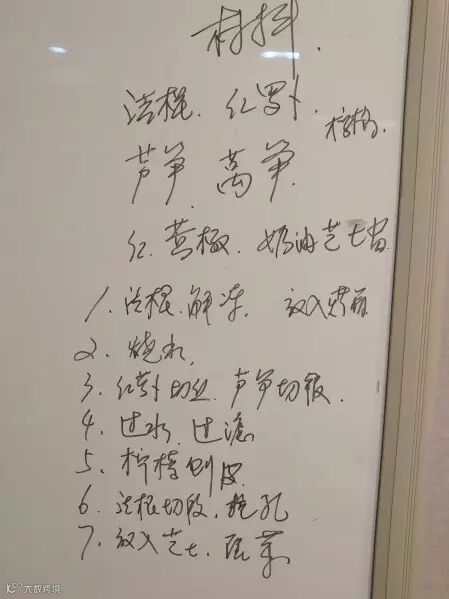 材料.
法棍. 红罗卜. 柠檬.
芦笋 莴笋.
红.黄椒. 奶油芝士酱
1. 法棍.解冻. 放入烤箱
2. 烧水.
3. 红萝卜切丝. 芦笋切段.
4. 过水.过滤
5. 柠檬刨皮
6. 法棍切段.挖孔
7. 放入芝士.蔬菜
大数跨境